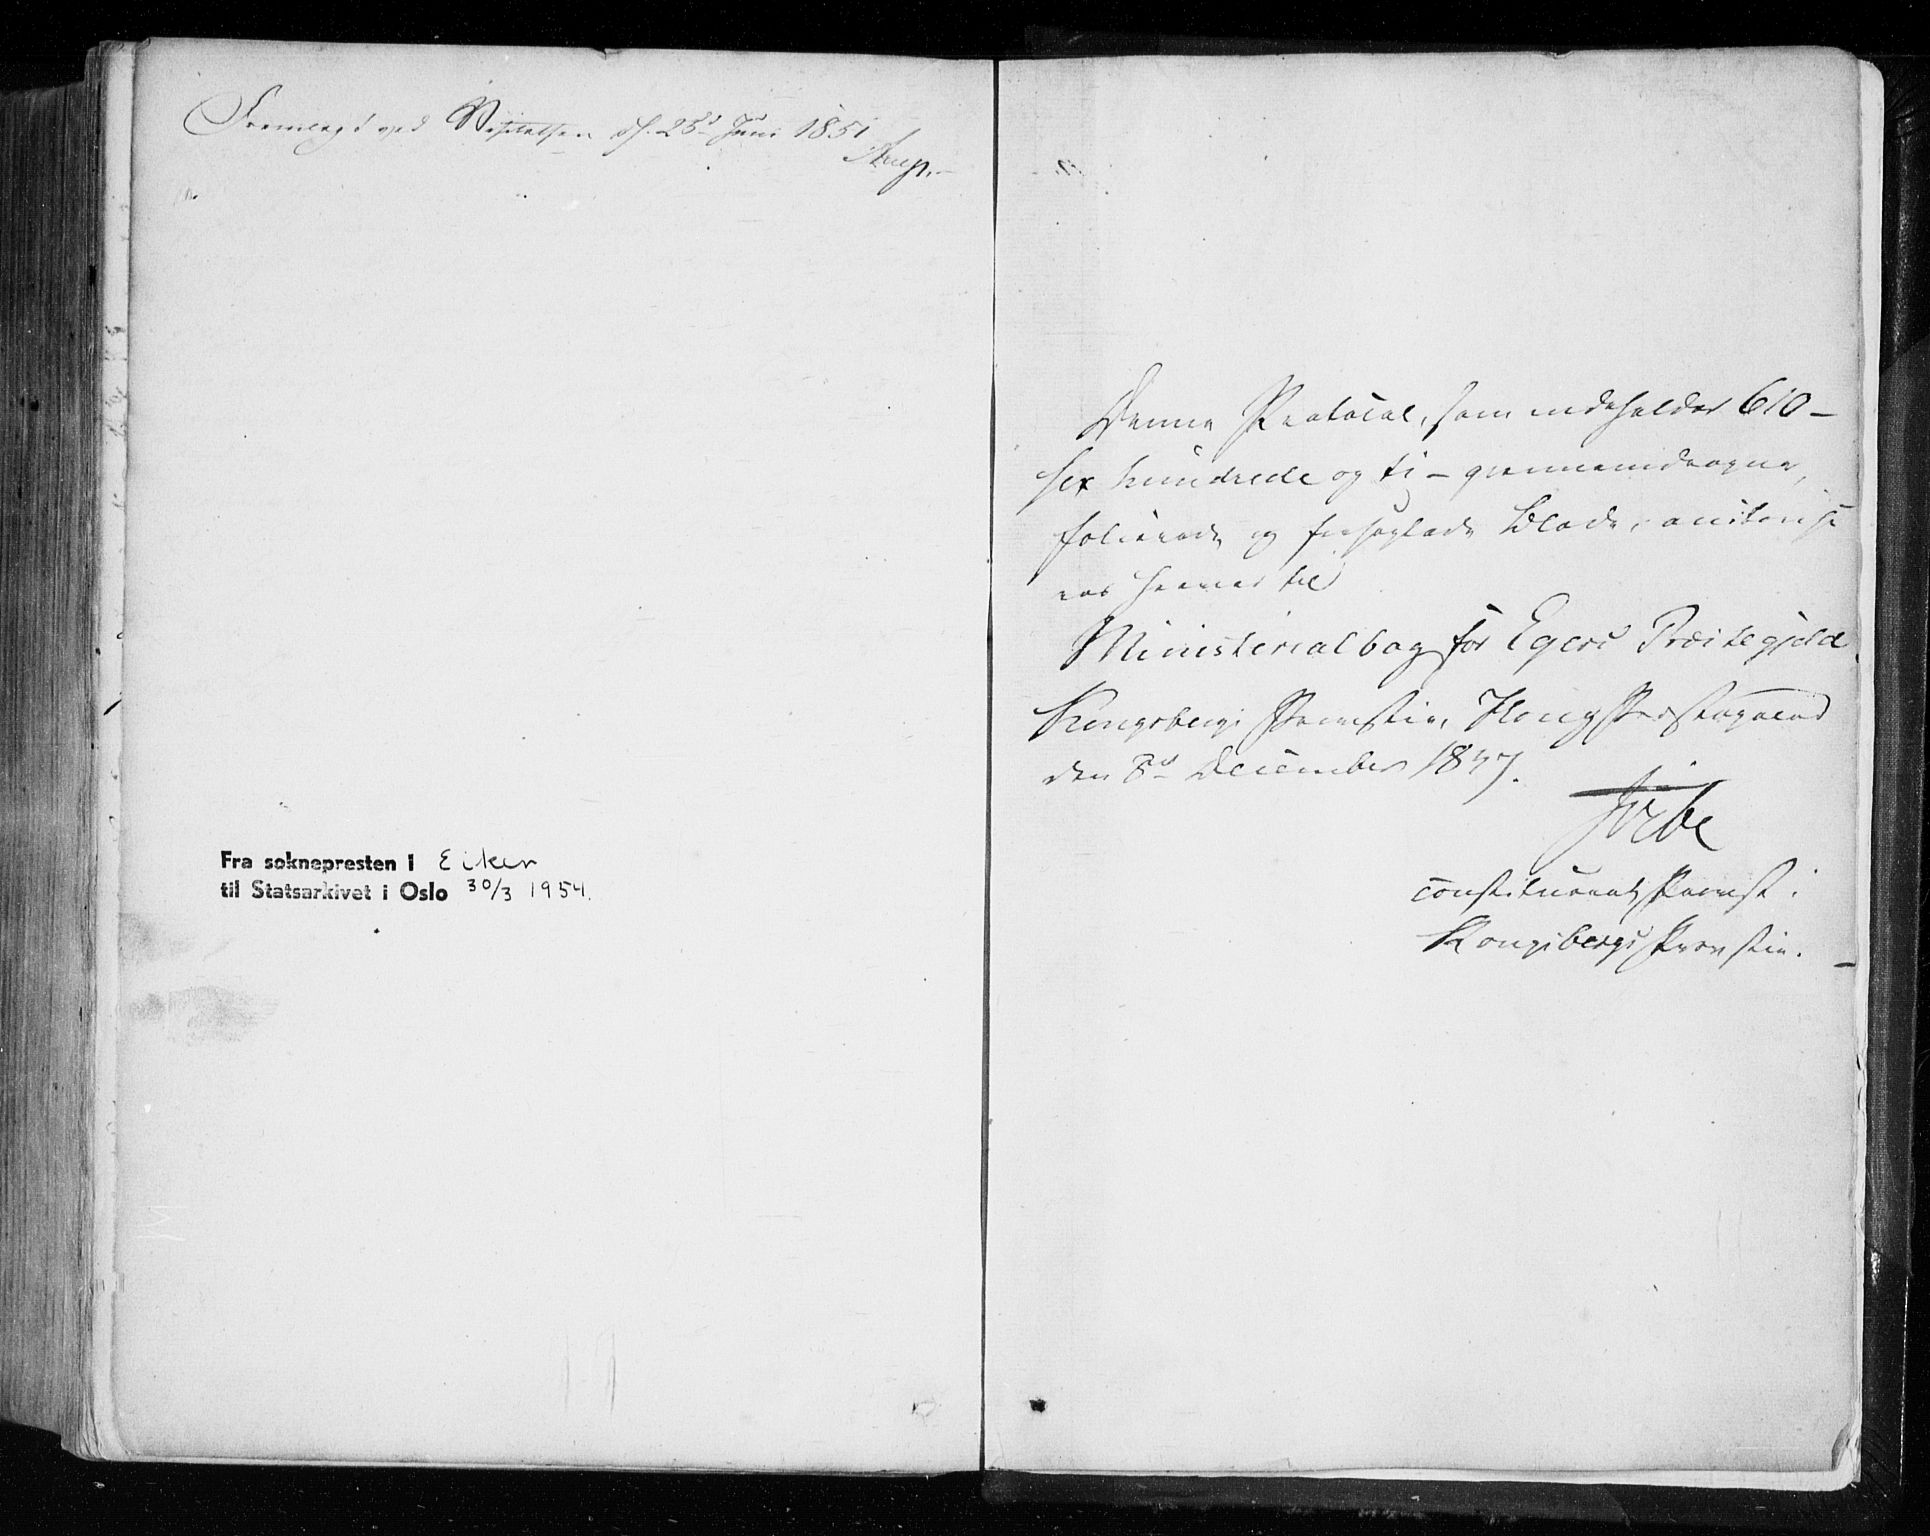 Fremlagt ved Visitatsen d. 25d Juni 1851
Arup.
Fra soknepresten i Eiker
til Statsarkivet i Oslo 30/3 1954.
Denne Protocol, som indeholder 610 -
sex hundrede og ti - gjennemdragne,
folierede og forseglede Blade, autorise
res herved til
Ministerialbog for Egers Præstegjeld.
Kongsbergs Provstie, Houg Præstegaard
den 8de December 1847.
constitueret Provst i
Kongsbergs Provstie.